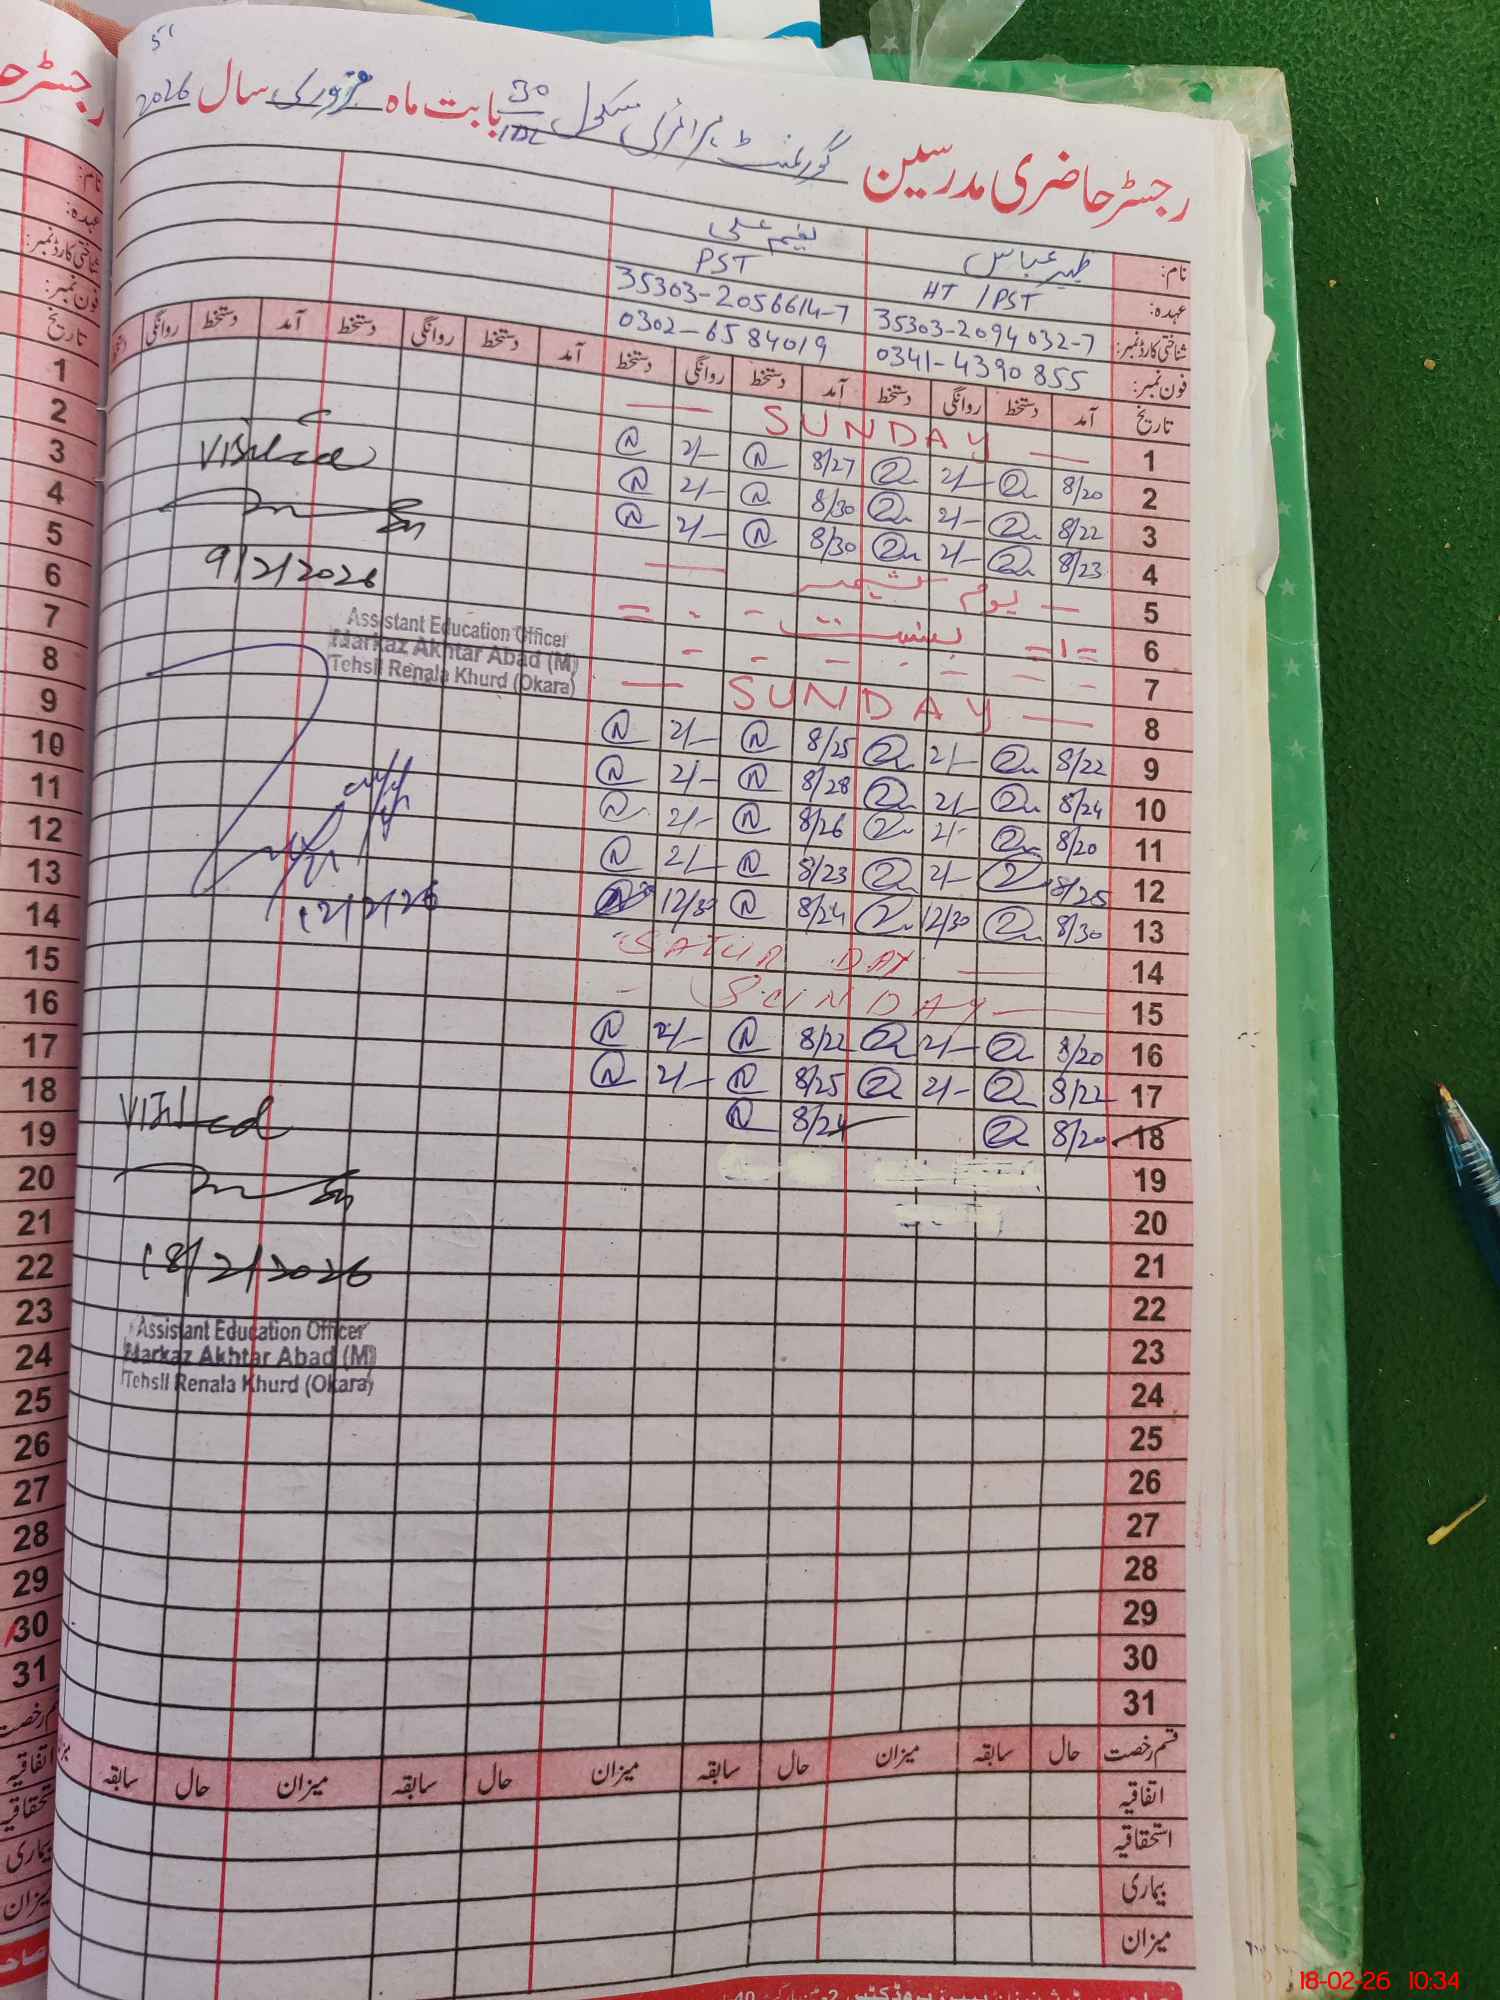 رجسٹر حاضری مدرسین گورنمنٹ پرائمری سکول 30 بابت ماہ فروری سال 2026
نام: ظہیر عباس نعیم علی
عہدہ: HT / PST PST
شناختی کارڈ نمبر: 35303-2094032-7 35303-2056614-7
فون نمبر: 0341-4390855 0302-6584019
تاریخ آمد دستخط روانگی دستخط آمد دستخط روانگی دستخط آمد دستخط روانگی دستخط آمد دستخط روانگی
1 — SUNDAY —
2 8/20 2/- 8/27 2/-
3 8/22 2/- 8/30 2/-
4 8/23 2/- 8/30 2/-
5 یوم کشمیر
6 بسنت
7
8 — SUNDAY —
9 8/22 2/- 8/25 2/-
10 8/24 2/- 8/28 2/-
11 8/20 2/- 8/26 2/-
12 8/25 2/- 8/23 2/-
13 8/30 12/30 8/24 12/30
14 SATUR DAY
15 SUNDAY
16 8/20 2/- 8/22 2/-
17 8/22 2/- 8/25 2/-
18 8/20 8/24
19
20
21
22
23
24
25
26
27
28
29
30
31
Visited
9/2/2026
Assistant Education Officer
Markaz Akhtar Abad (M)
Tehsil Renala Khurd (Okara)
12/2/26
Visited
18/2/2026
Assistant Education Officer
Markaz Akhtar Abad (M)
Tehsil Renala Khurd (Okara)
قسم رخصت حال سابقہ میزان حال سابقہ میزان حال سابقہ میزان حال سابقہ
اتفاقیہ
استحقاقیہ
بیماری
میزان
رجسٹر
نام:
عہدہ:
شناختی کارڈ نمبر:
فون نمبر:
تاریخ
1
2
3
4
5
6
7
8
9
10
11
12
13
14
15
16
17
18
19
20
21
22
23
24
25
26
27
28
29
30
31
18-02-26 10:34